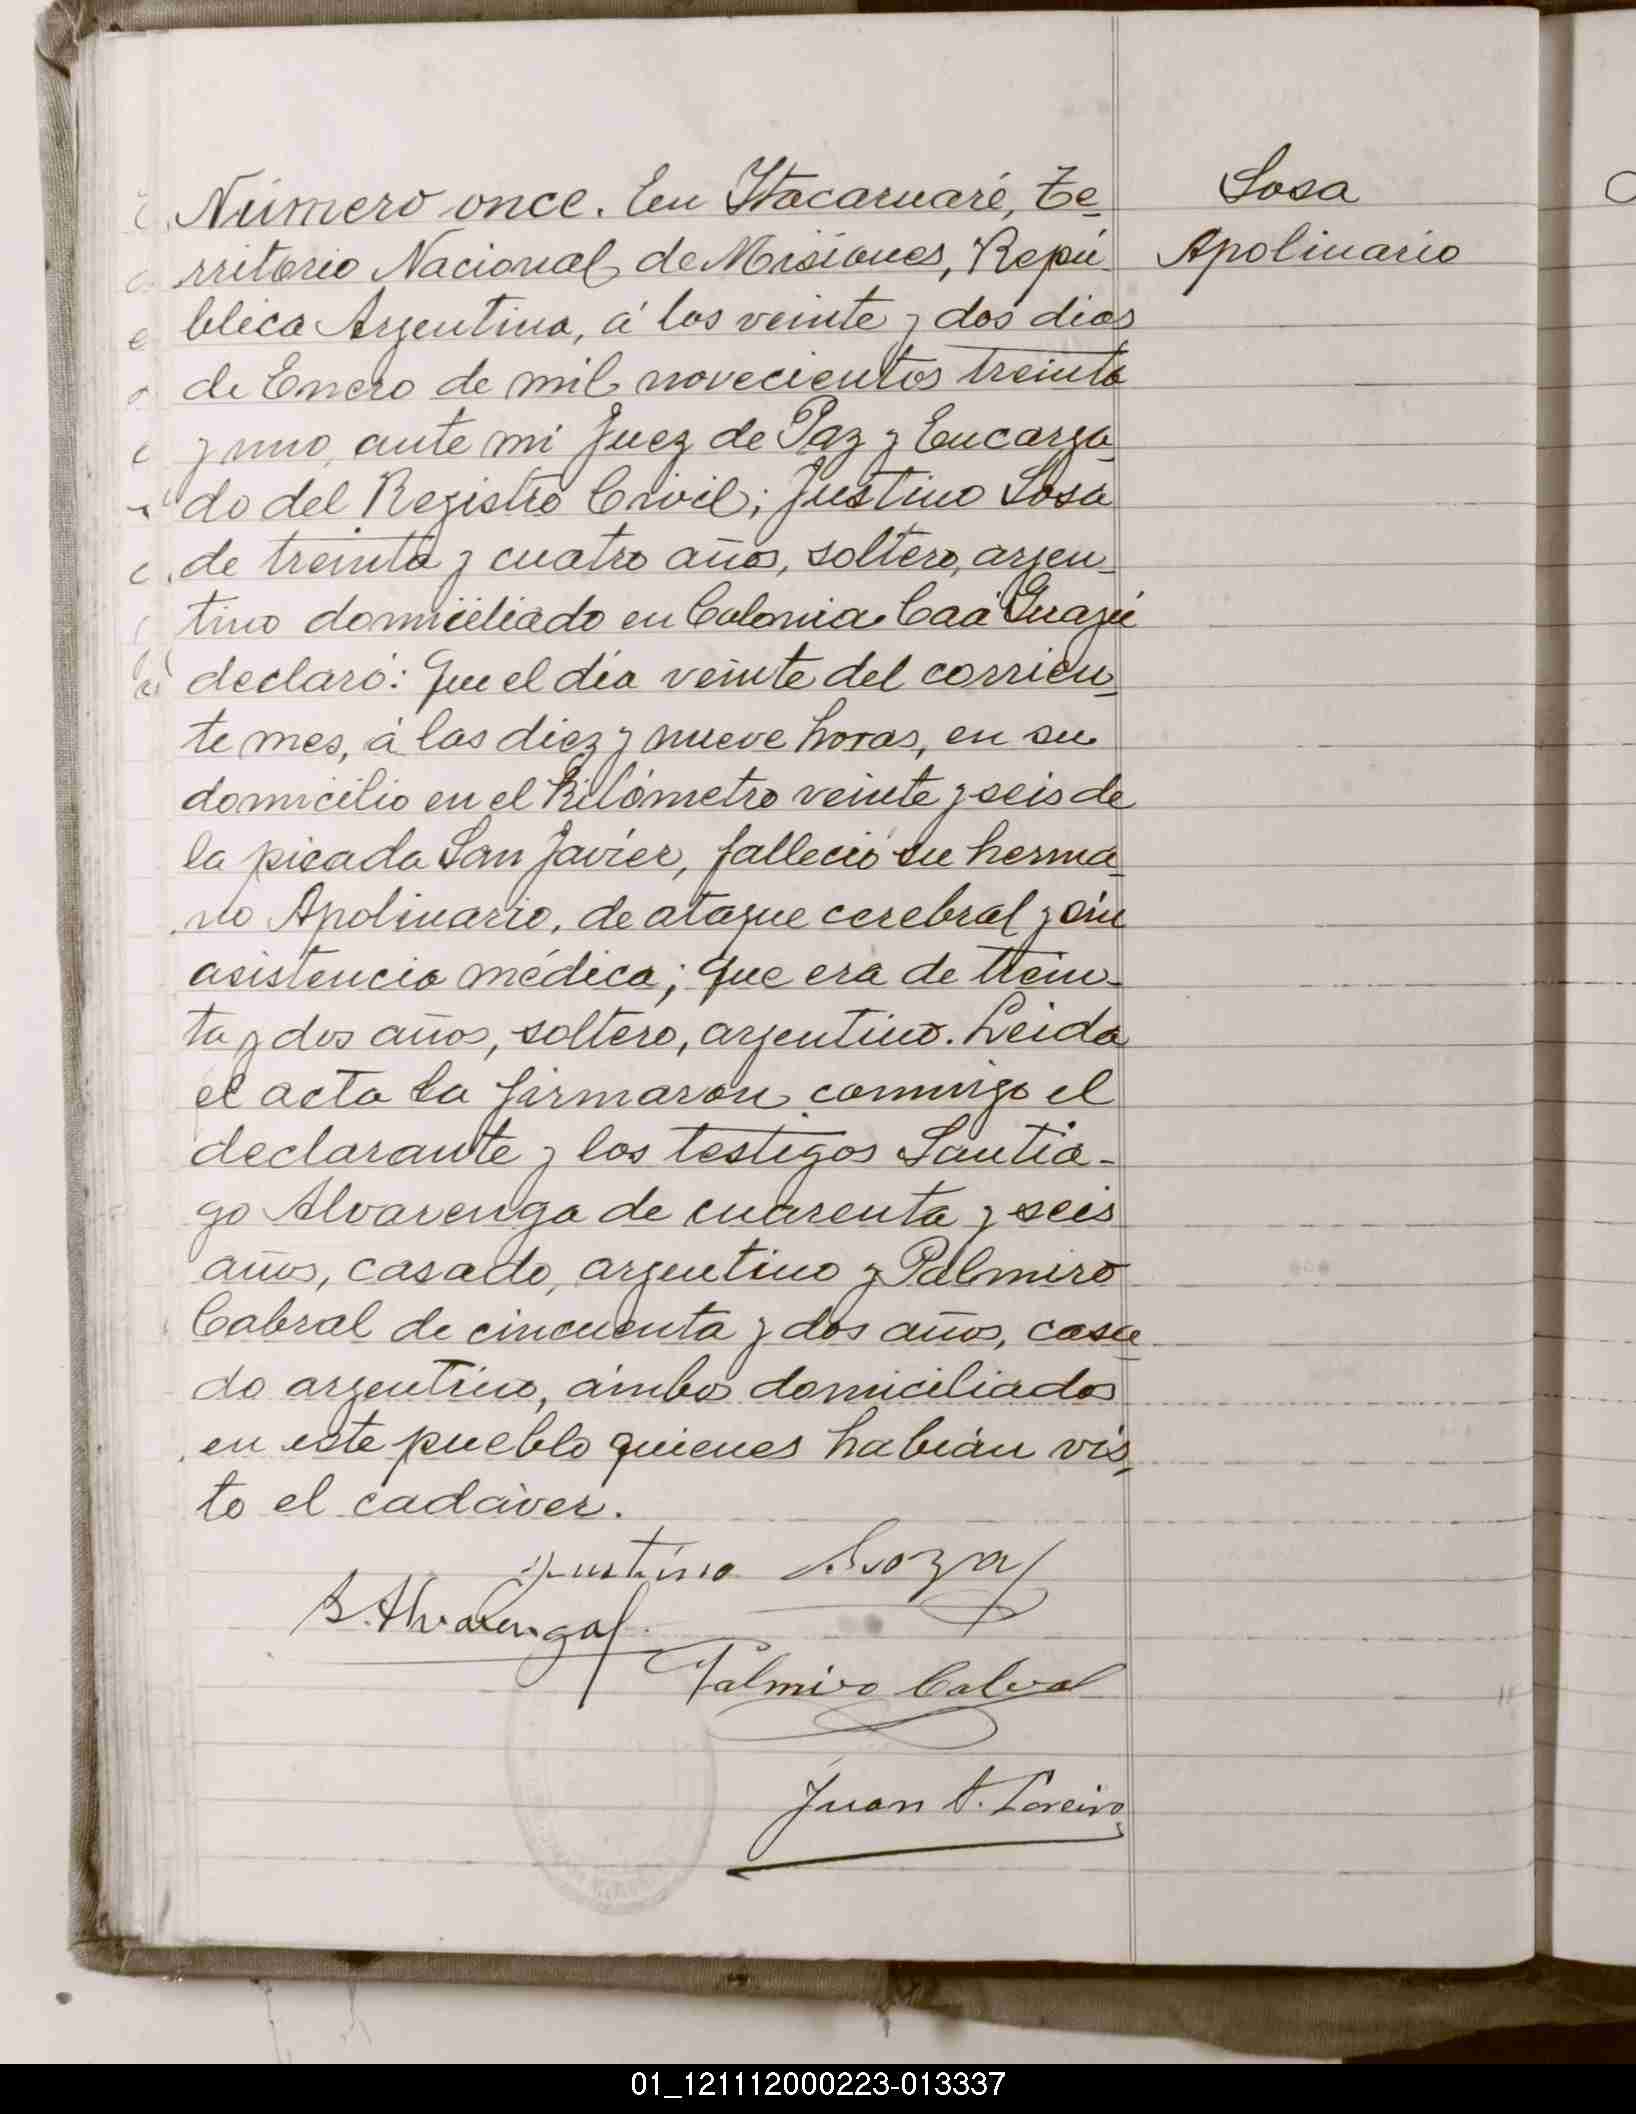 Número once. En Itacaruaré, Te-
rritorio Nacional de Misiones, Repú-
blica Argentina, á los veinte y dos dias
de Enero de mil novecientos treinta
y uno, ante mi Juez de Paz y Encarga-
do del Registro Civil; Justino Sosa
de treinta y cuatro años, soltero, argen-
tino domiciliado en Colonia Caá Guazú
declaró: Que el día veinte del corrien-
te mes, á las diez y nueve horas, en su
domicilio en el Kilómetro veinte y seis de
la picada San Javier, falleció su herma-
no Apolinario, de ataque cerebral y sin
asistencia médica; que era de trein-
ta y dos años, soltero, argentino. Leida
el acta la firmaron conmigo el
declarante y los testigos Santia-
go Alvarenga de cuarenta y seis
años, casado, argentino y Palmiro
Cabral de cincuenta y dos años, casa-
do argentino, ámbos domiciliados
en este pueblo quienes habían vis-
to el cadáver.
Sosa
Apolinario
Justino Soza
S. Alvarenga
Palmiro Cabral
Juan A.
01_121112000223-013337